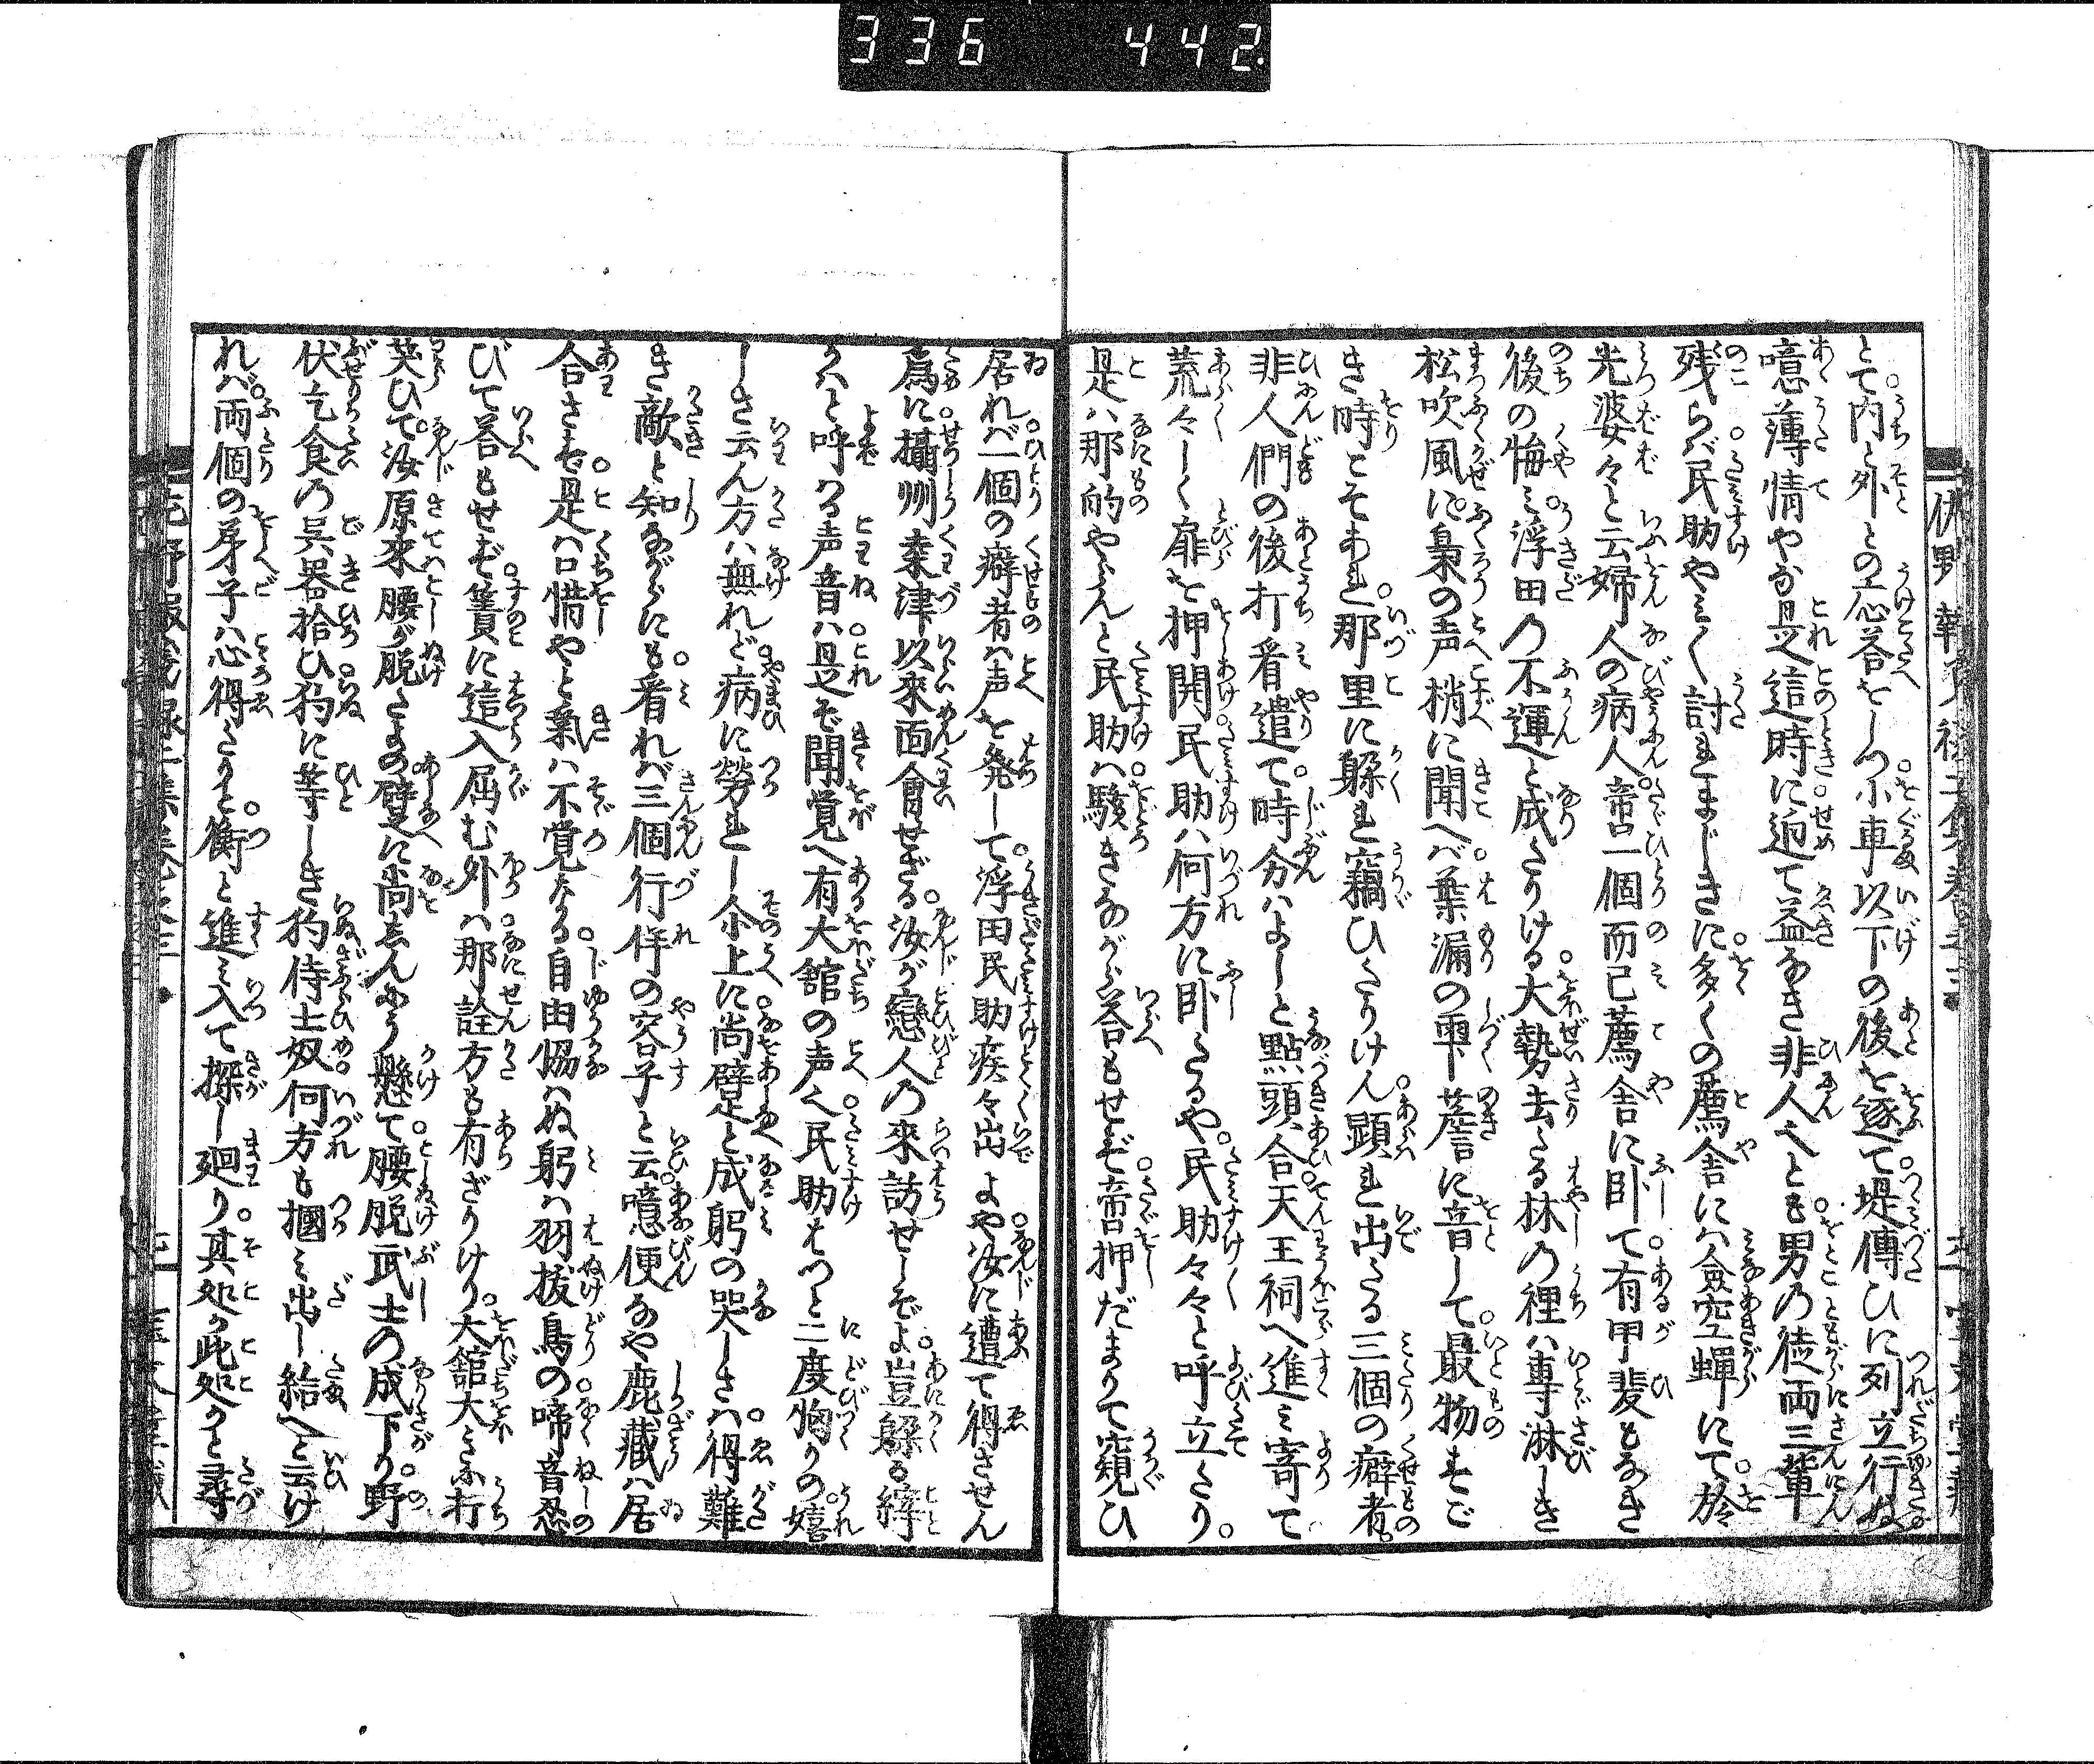 336 442.
とて内と外との応答をしつ小車以下の後を逐て堤傳ひに列立行ぬ
噫薄情やな是這時に迫て益なき非人へとも男の徒両三輩
残らバ民助やミ〳〵討れまじきに多くの薦舎にハ僉空蝉にて於
光婆々と云婦人の病人啻一個而已薦舎に臥て有甲斐もなき
後の悔ミ浮田の不運と成たりける大勢去たる林の裡ハ専淋しき
松吹風に梟の声梢に聞へバ葉漏の雫簷に音して最物すご
き時こそあれ那里に躱れ竊ひたりけん顕れ出たる三個の癖者
非人們の後打看遣て時分ハよしと點頭合天王祠へ進ミ寄て
荒々しく扉を押開民助ハ何方に臥たるや民助々々と呼立たり
是ハ那的やらんと民助ハ駭きながら答もせず啻押だまりて窺ひ
居れバ一個の癖者ハ声を発して浮田民助疾々出よや汝に遭て得させん
為に攝州桒津以來面會せざる汝が戀人の來訪せしぞよ豈躱る縡
かハと呼ハる声音ハ是ぞ聞覚へ有大舘の声へ民助はつと二度胸りの嬉
しさ云ん方ハ無れど病に勞れし尒上に尚躄と成躬の哭しさハ得難
き敵と知ながらにも看れバ三個行伴の容子と云噫便なや鹿藏ハ居
合さず是ハ口惜やと氣ハ不覚なる自由協ハぬ躬ハ羽抜鳥の啼音忍
びて答もせず簀に這入屈む外ハ那詮方も有ざりけり大舘大ミに打
笑ひて汝原來腰が脱たる躄に尚ゑんよう懸て腰脱武士の成下り野
伏乞食の呉器拾ひ犳に等しき犳侍士奴何方も摑ミ出し給へと云け
れバ両個の弟子ハ心得たりと衝と進ミ入て探し廻り其処か此処かと尋